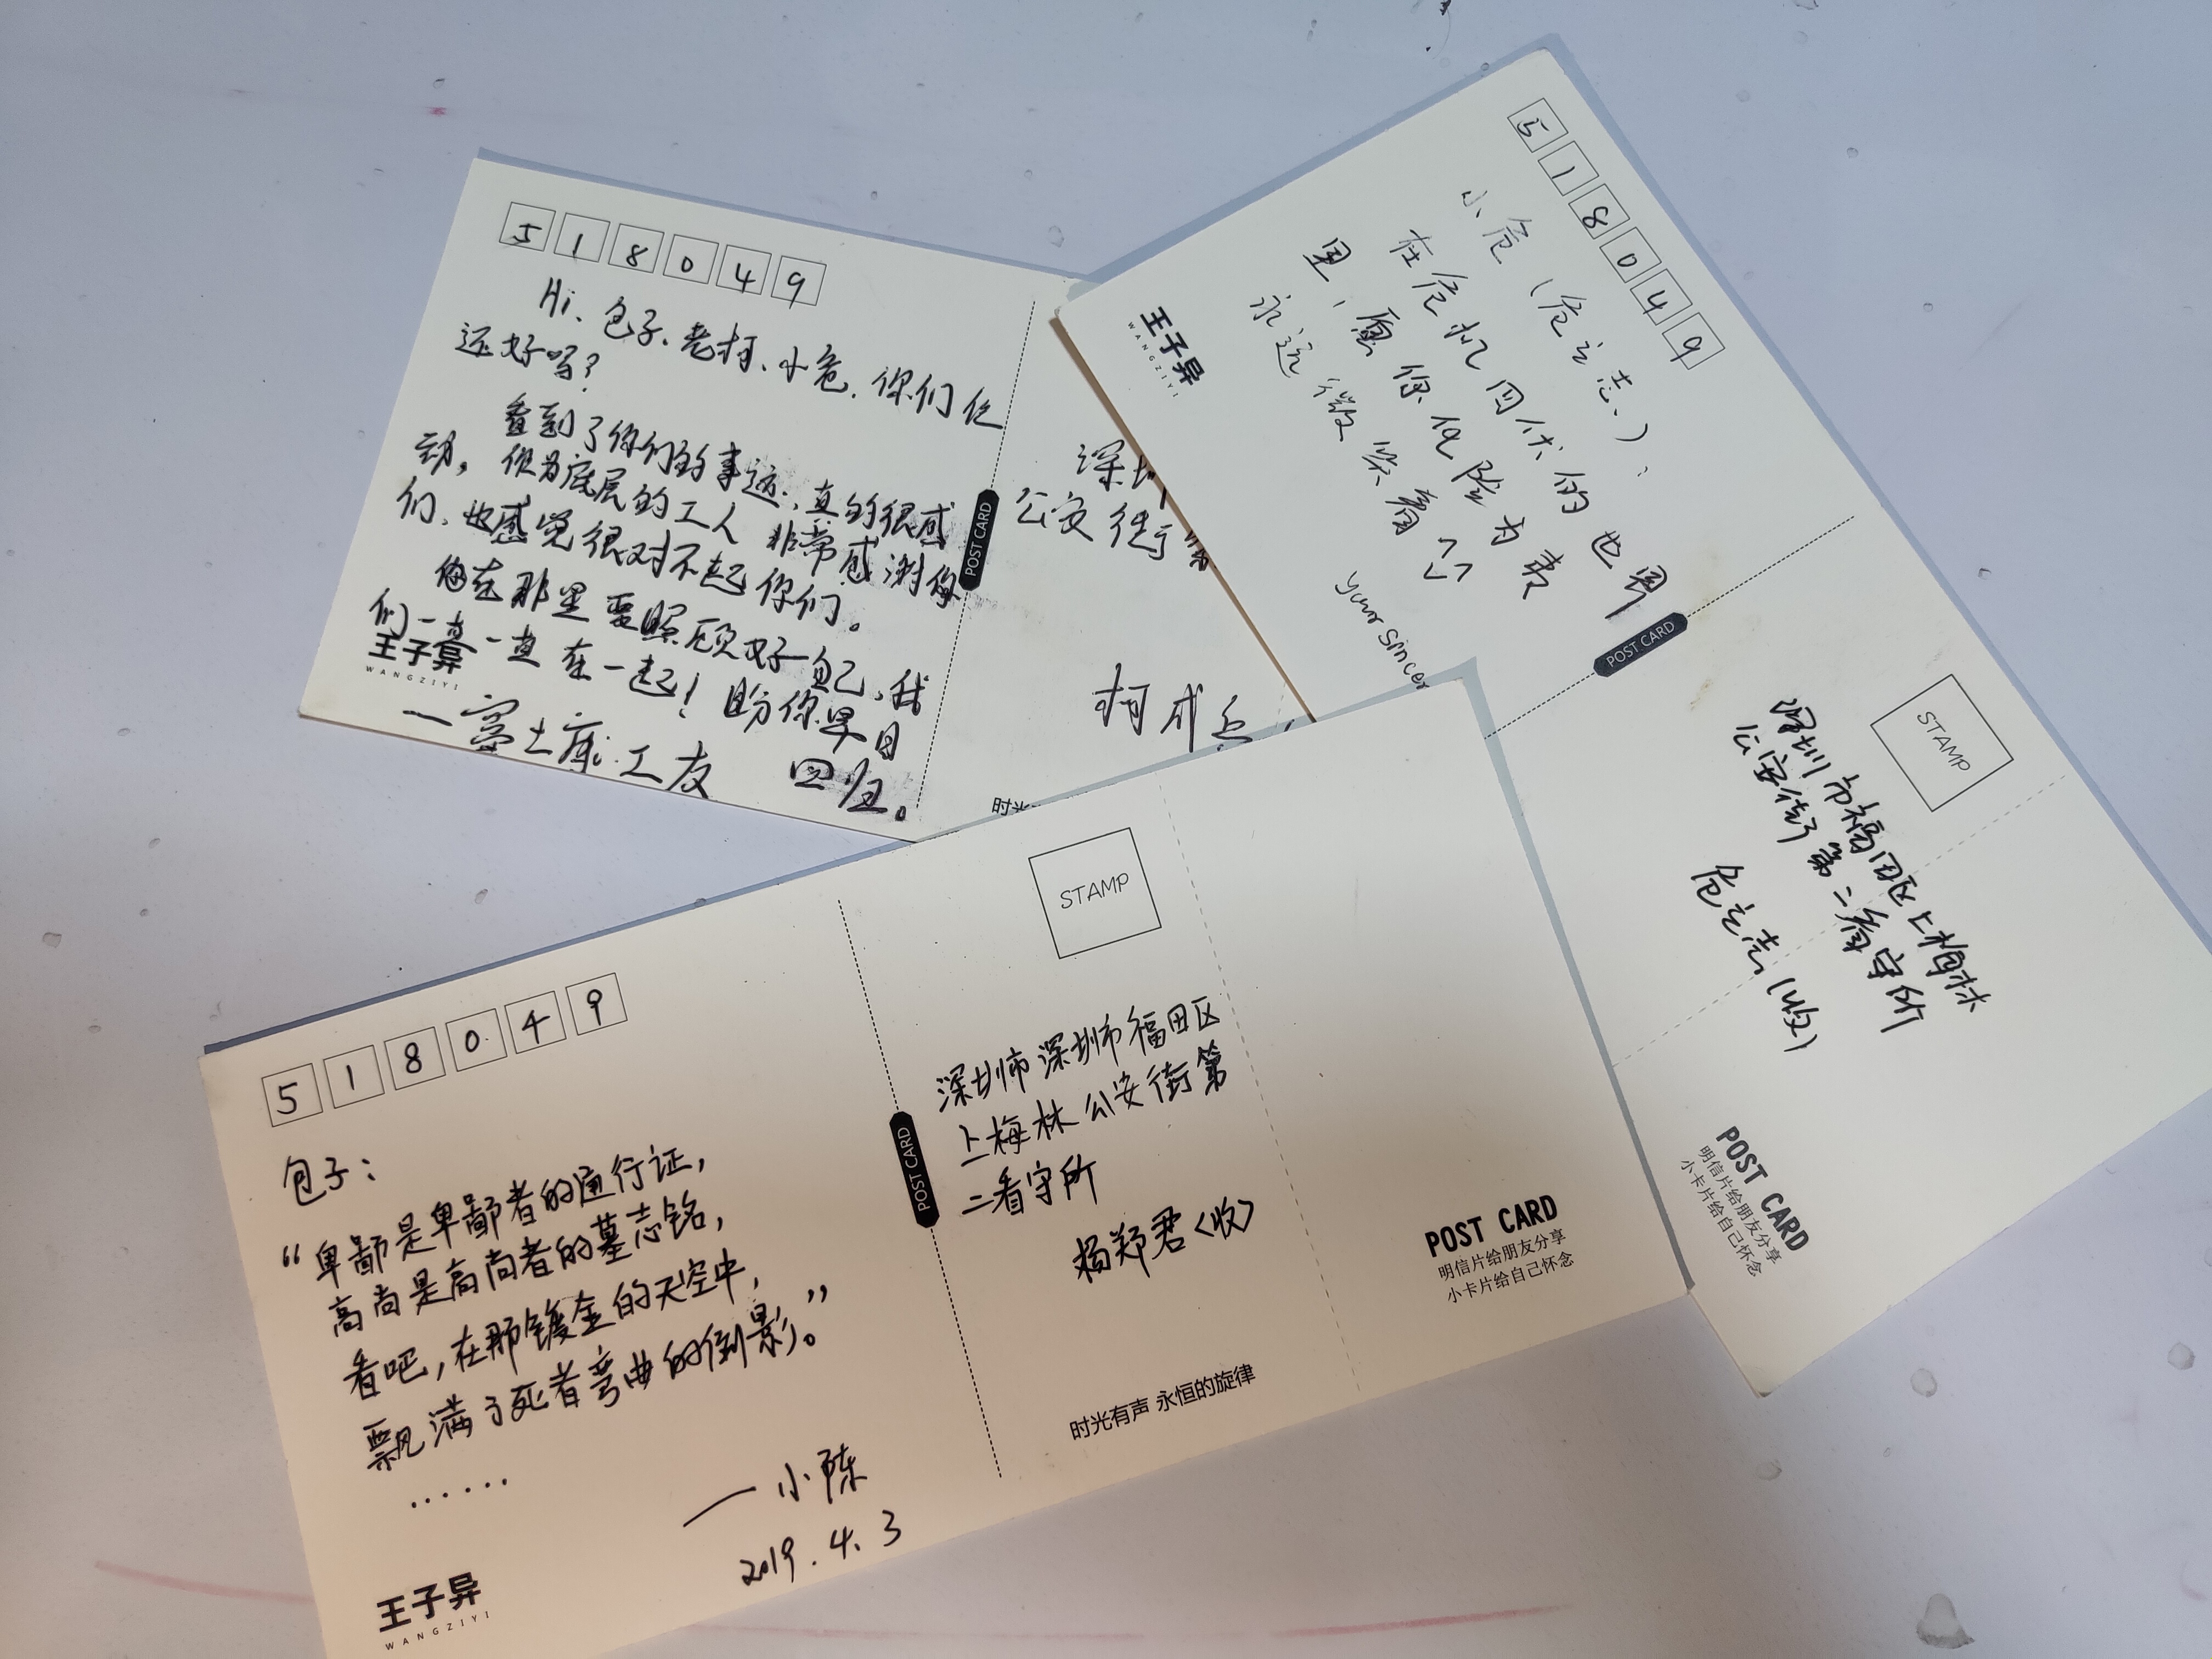 518049
Hi、包子、老柯、小危,你们仨
还好吗?
看到了你们的事迹,真的很感
动。作为底层的工人 非常感谢你
们、也感觉很对不起你们。
在那里 要照顾好自己,我
们一直一直在一起!盼你早日
回归。
—富士康工友
王子异
WANGZIYI
POST CARD
深圳
公安街
柯成兵
时光
518049
小危(危立志):
在危机四伏的世界
里,愿你化险为夷
永远微笑着
your sincer
王子异
WANGZIYI
POST CARD
STAMP
深圳市福田区上梅林
公安街第二看守所
危立志(收)
POST CARD
明信片给朋友分享
小卡片给自己怀念
518049
包子:
“卑鄙是卑鄙者的通行证,
高尚是高尚者的墓志铭,
看吧,在那镀金的天空中,
飘满了死者弯曲的倒影。”
……
—小陈
2019.4.3
王子异
WANGZIYI
POST CARD
STAMP
深圳市深圳市福田区
上梅林公安街第
二看守所
杨郑君<收>
时光有声 永恒的旋律
POST CARD
明信片给朋友分享
小卡片给自己怀念